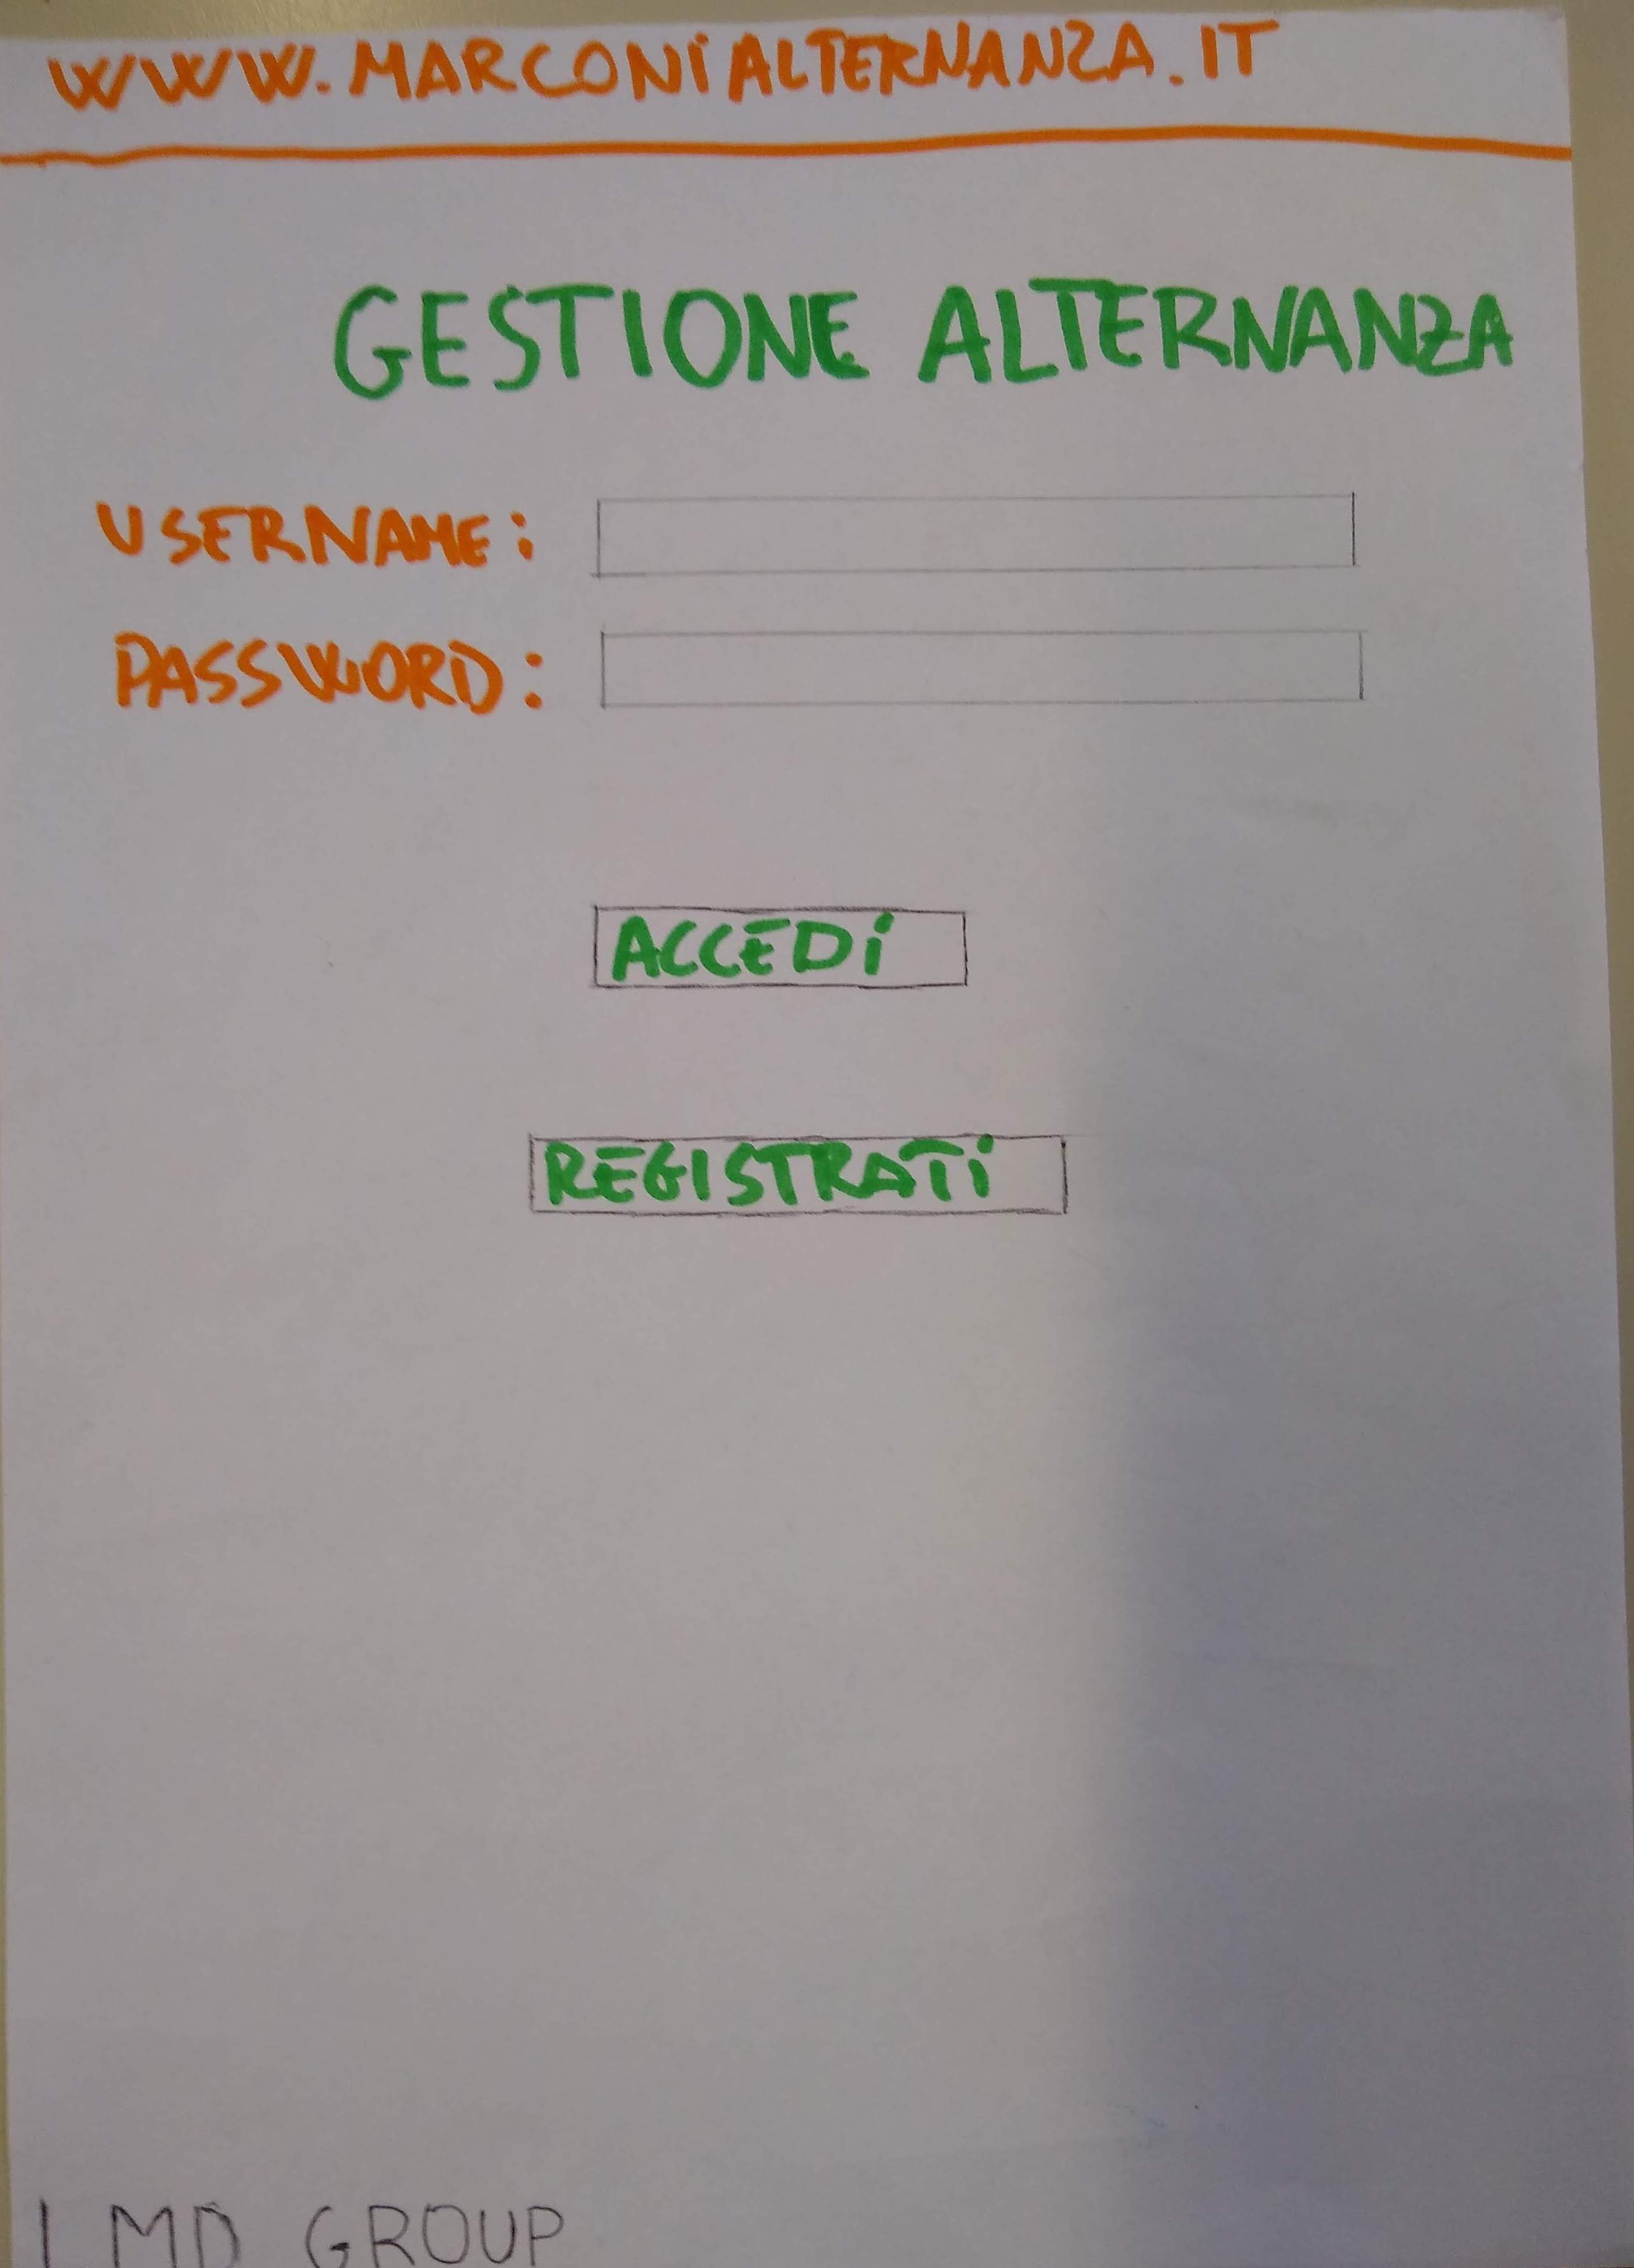 WWW.MARCONIALTERNANZA.IT
GESTIONE ALTERNANZA
USERNAME:
PASSWORD:
ACCEDI
REGISTRATI
GROUP